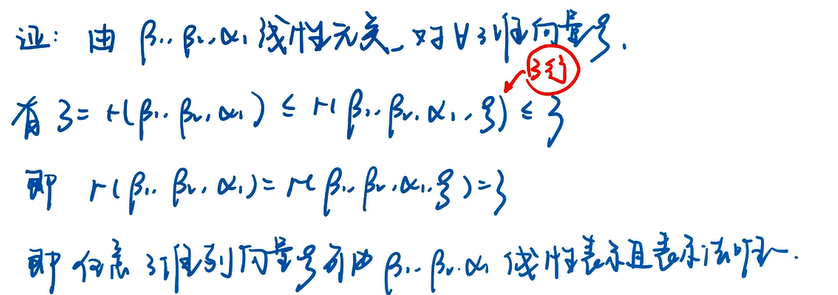 证: 由 β₁, β₂, α₁ 线性无关, 对 ∀ 3维向量 ξ,
3行
有 3 = r(β₁, β₂, α₁) ≤ r(β₁, β₂, α₁, ξ) ≤ 3
即 r(β₁, β₂, α₁) = r(β₁, β₂, α₁, ξ) = 3
即 任意 3维列向量 ξ 可由 β₁, β₂, α₁ 线性表示且表示法唯一.